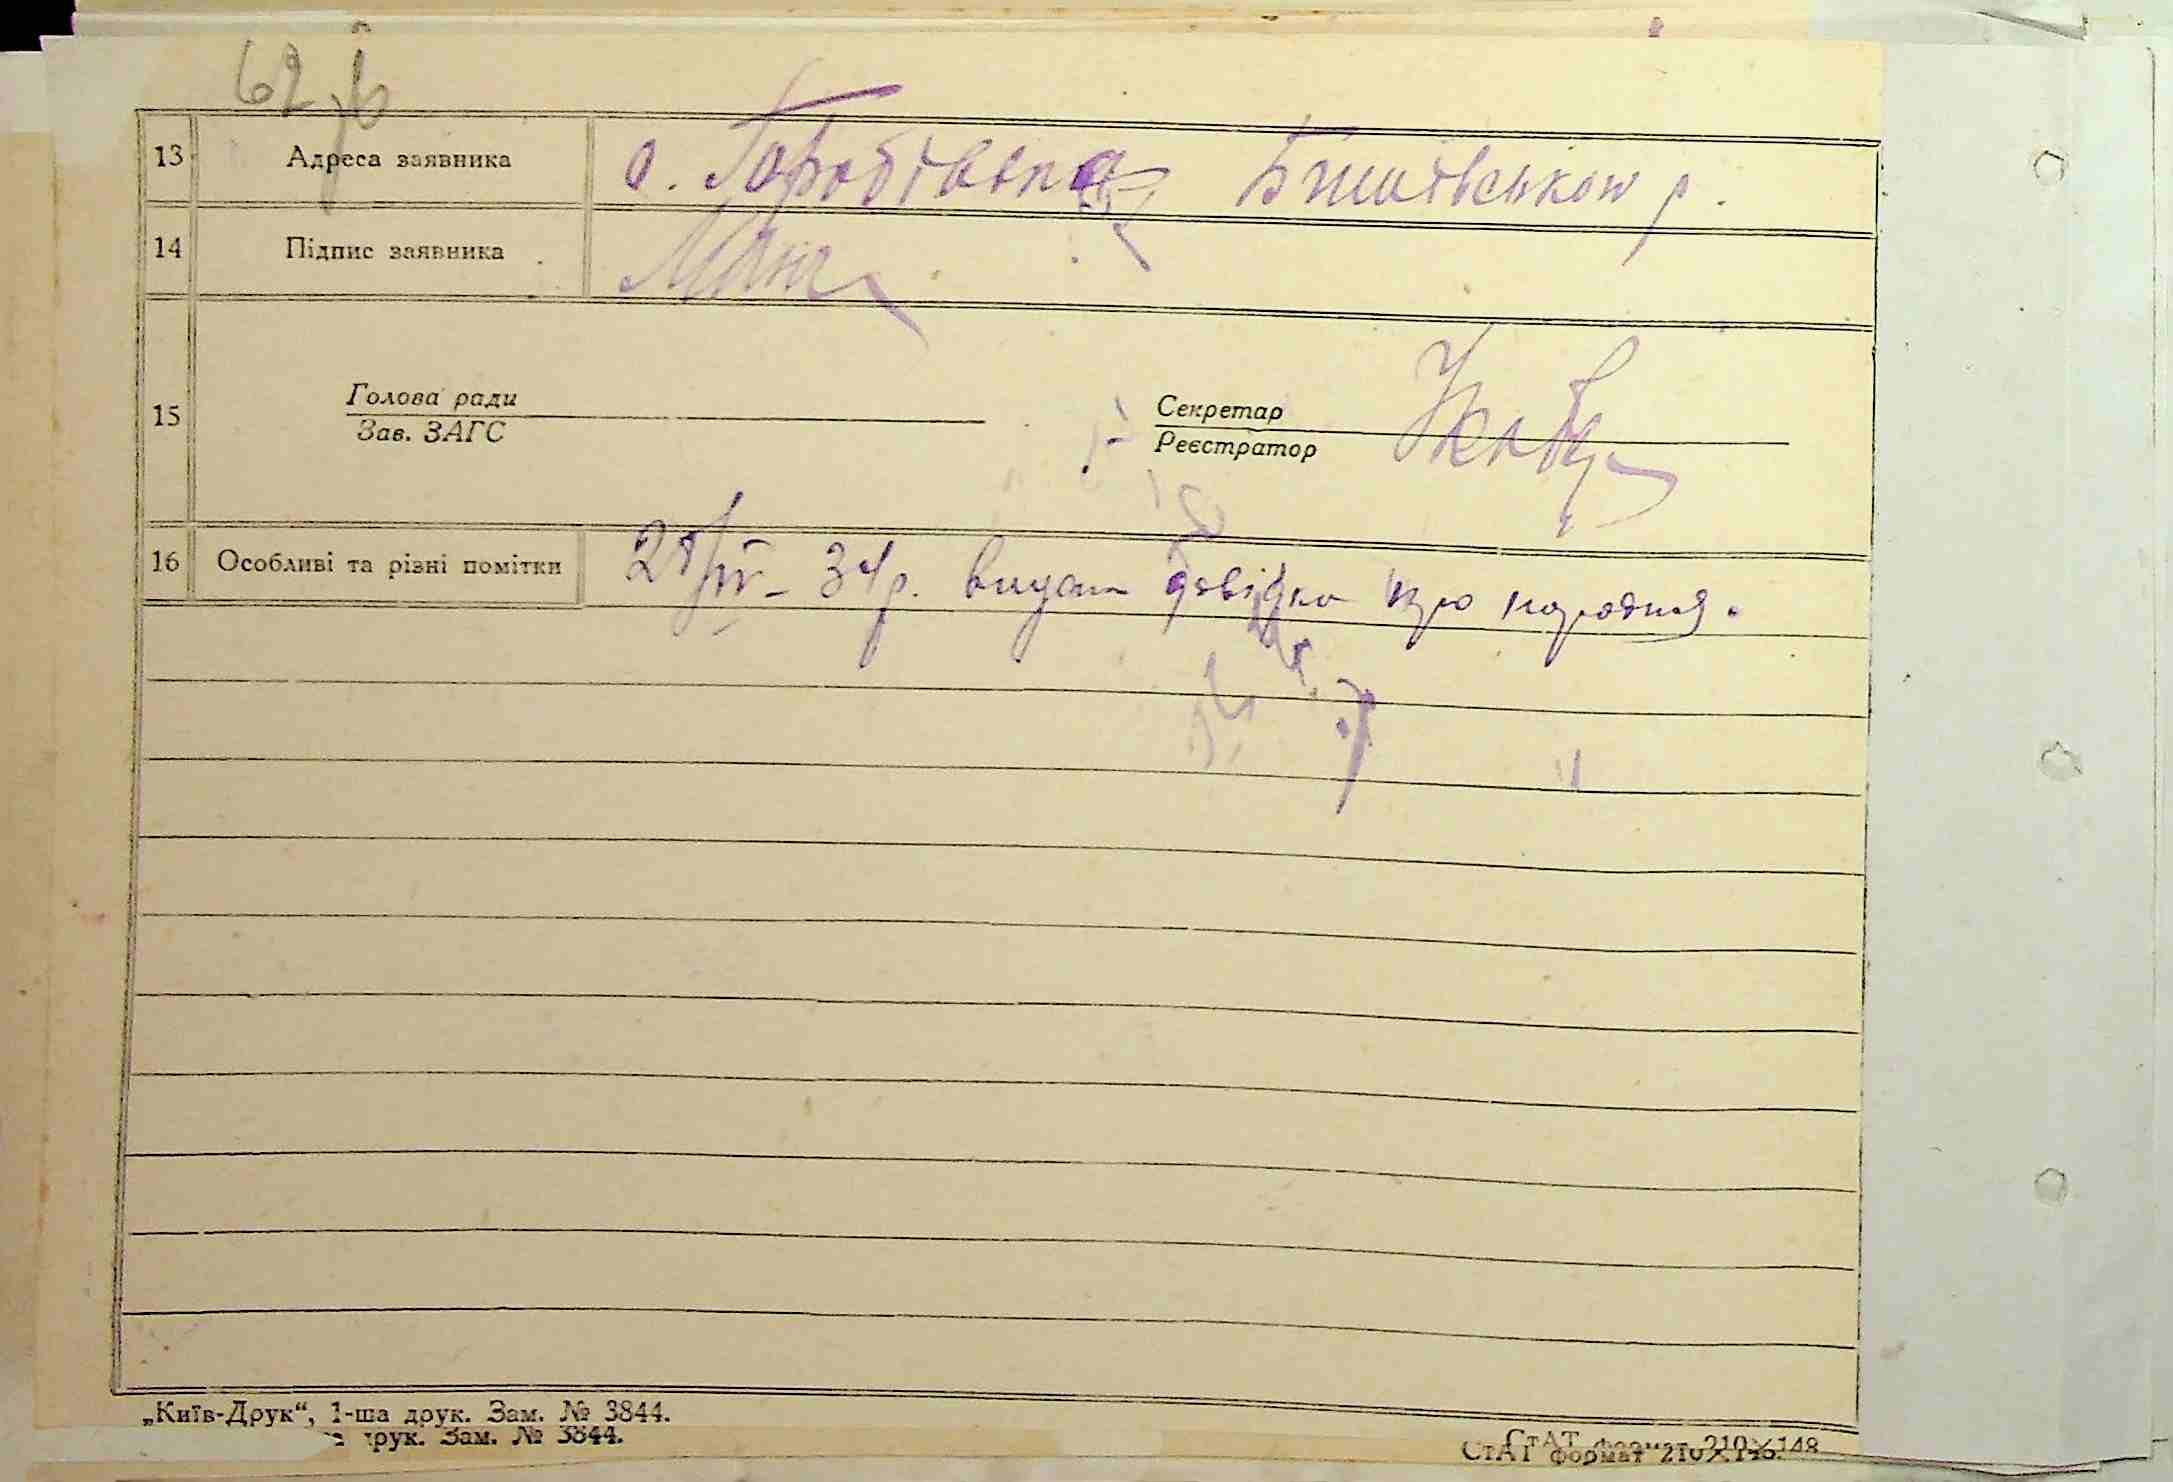 62
13 Адреса заявника с. Горобіївка р.
14 Підпис заявника
Голова ради
Зав. ЗАГС
15
Секретар
Реєстратор
16 Особливі та різні помітки 34 р. видан довідка про народжен.
„Київ-Друк“, 1-ша друк. Зам. № 3844.
друк. Зам. № 3844.
СтАТ формат 210×148
СтАТ формат 210×148.